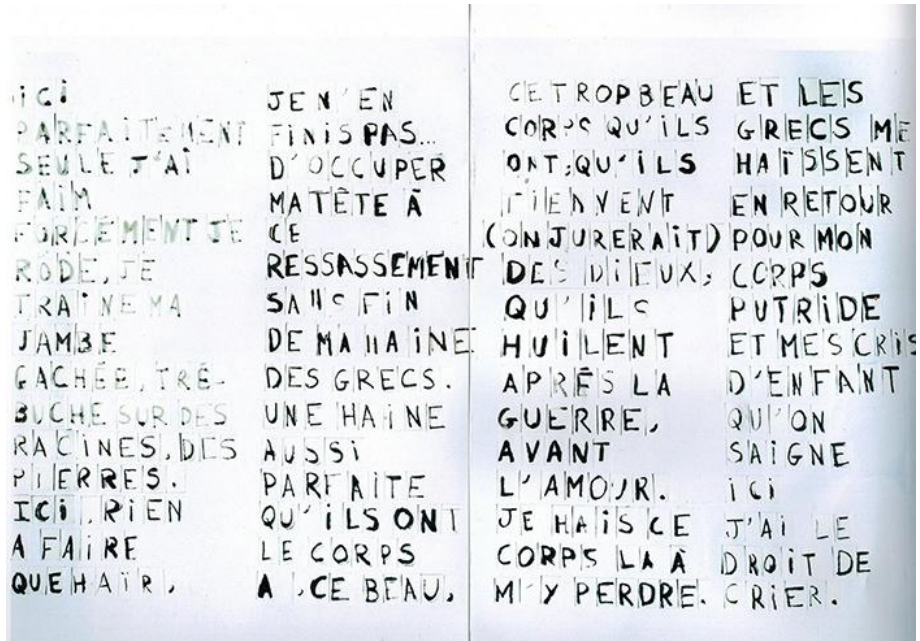 ICI
PARFAITEMENT
SEULE J'AI
FAIM
FORCEMENT JE
RODE, JE
TRAINE MA
JAMBE
GACHÉE, TRE-
BUCHE SUR DES
RACINES, DES
PIERRES.
ICI, RIEN
A FAIRE
QUE HAÏR.
JE N'EN
FINIS PAS...
D'OCCUPER
MA TÊTE À
CE
RESSASSEMENT
SANS FIN
DE MA HAINE
DES GRECS.
UNE HAINE
AUSSI
PARFAITE
QU'ILS ONT
LE CORPS
A .CE BEAU,
CE TROP BEAU
CORPS QU'ILS
ONT, QU'ILS
TIENNENT
(ON JURERAIT)
DES DIEUX,
QU'ILS
HUILENT
APRÈS LA
GUERRE,
AVANT
L'AMOUR.
JE HAIS CE
CORPS LA À
M'Y PERDRE.
ET LES
GRECS ME
HAÏSSENT
EN RETOUR
POUR MON
CORPS
PUTRIDE
ET MES CRIS
D'ENFANT
QU'ON
SAIGNE
ICI
J'AI LE
DROIT DE
CRIER.